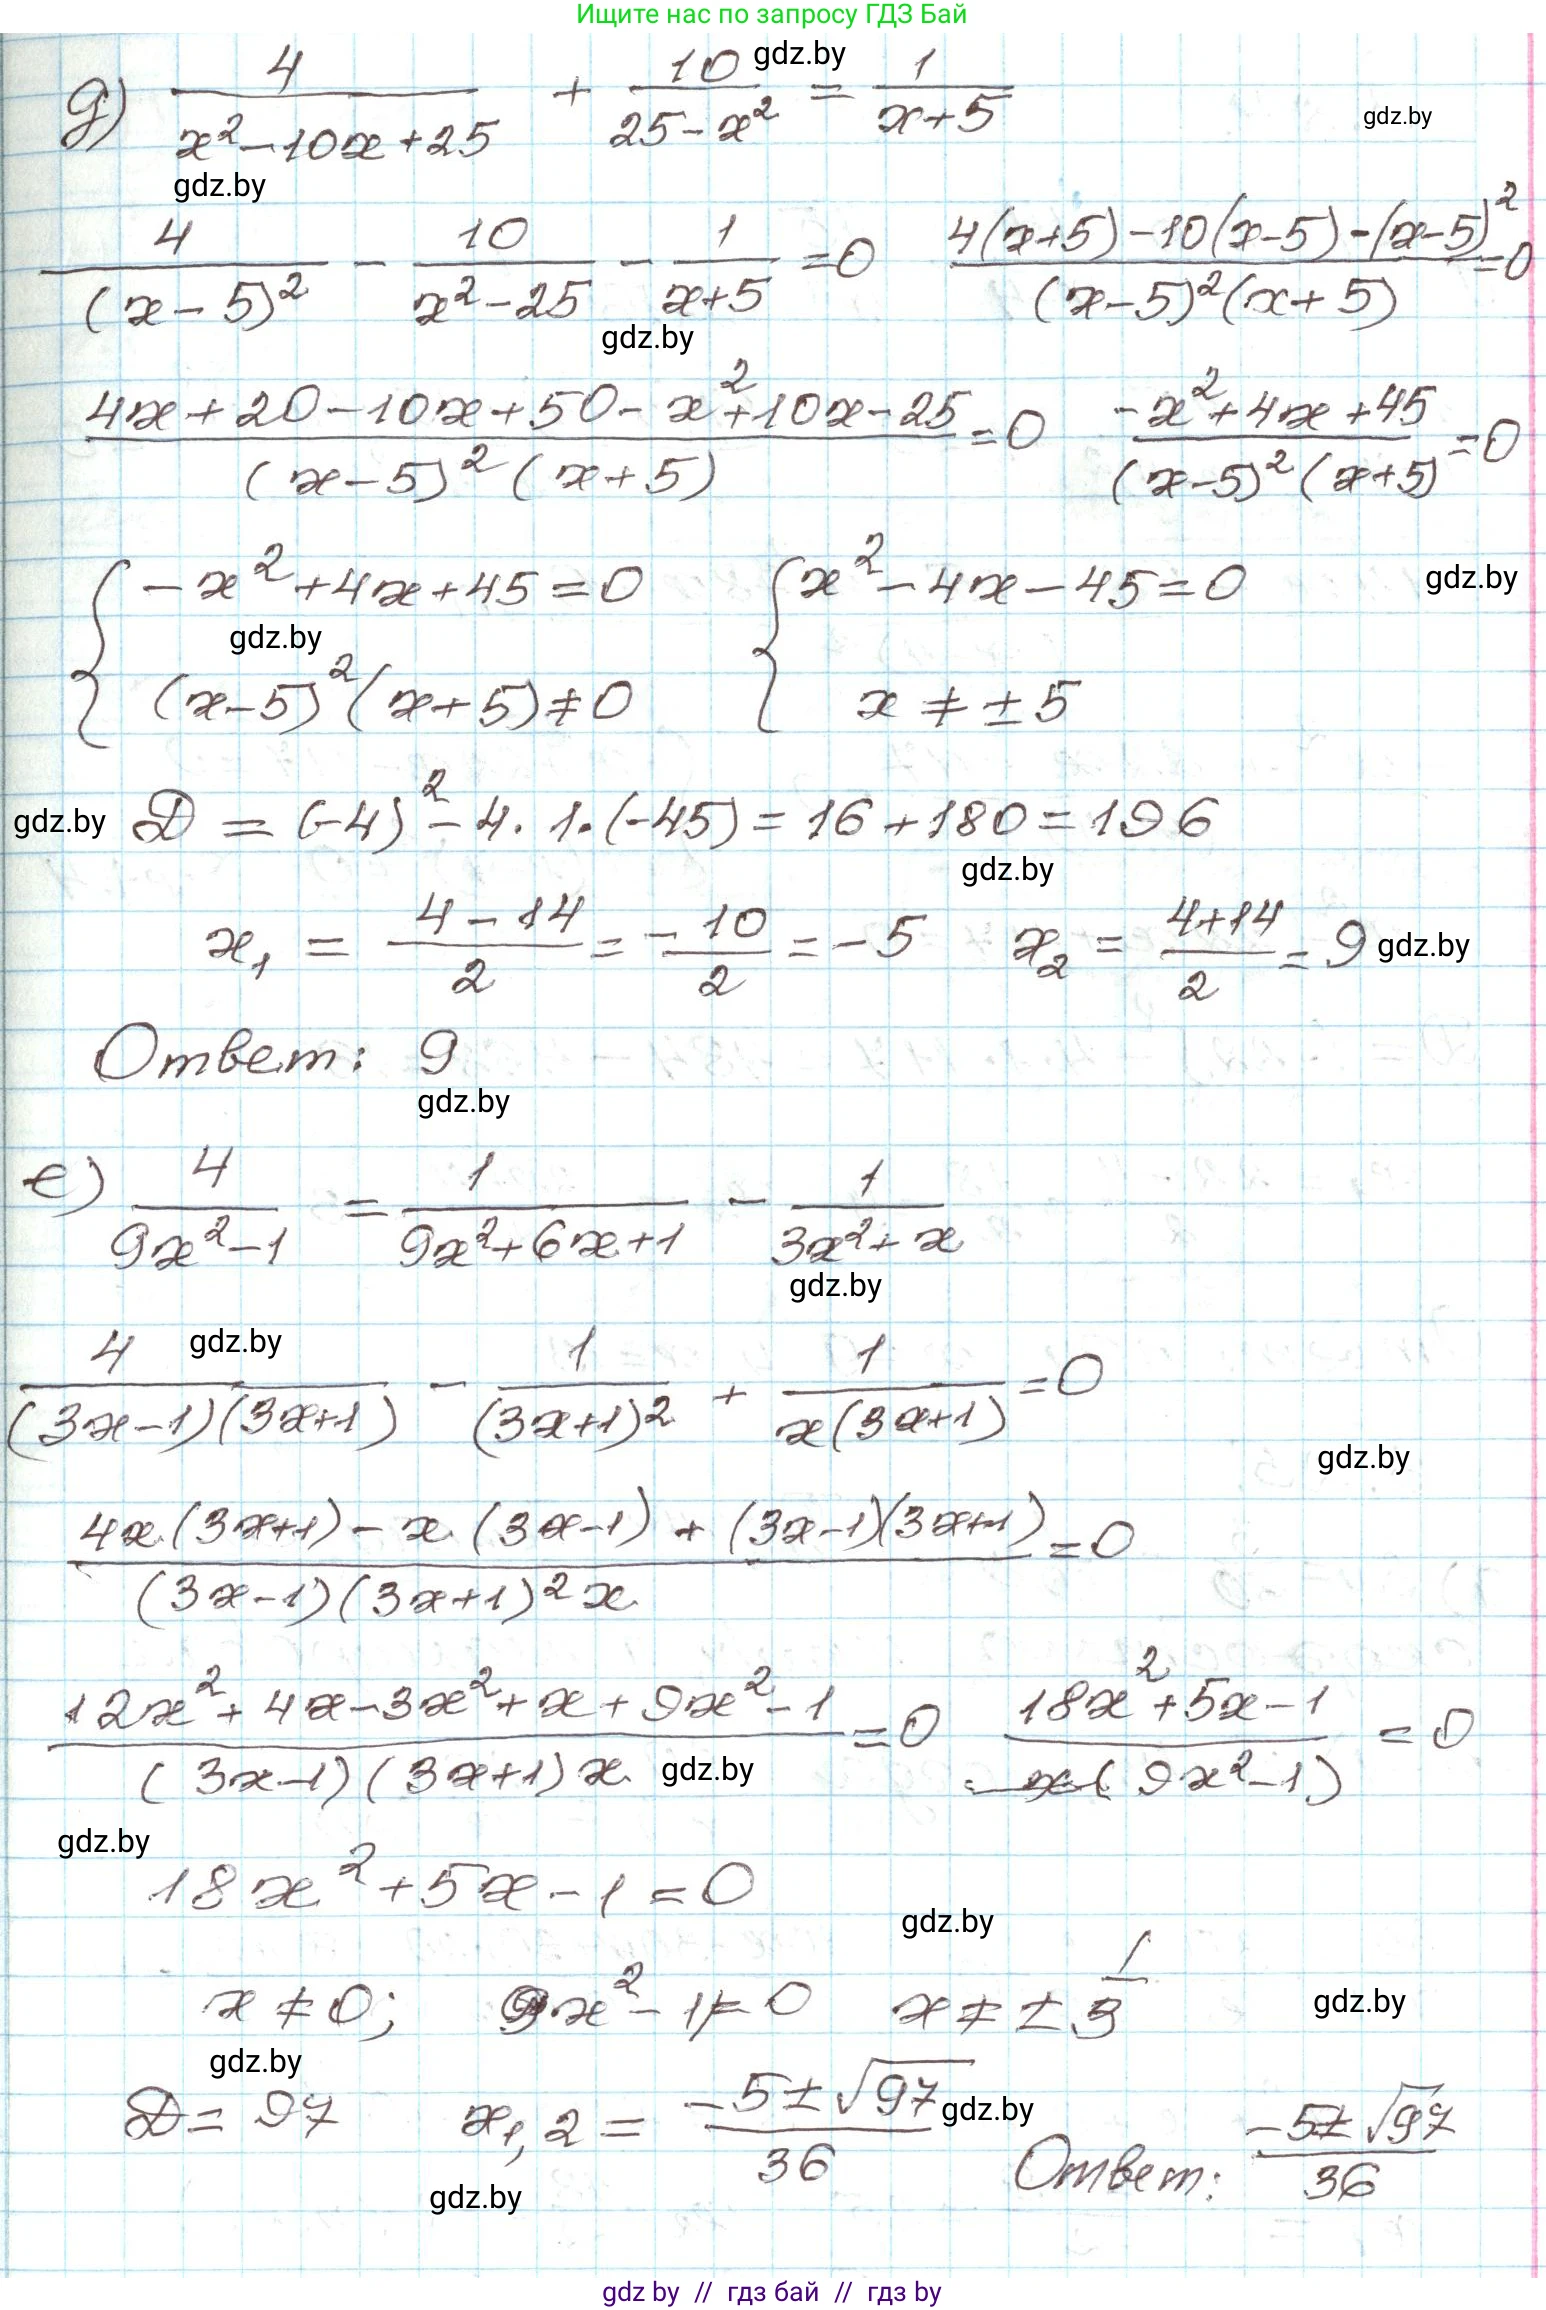 Ищите нас по запросу ГДЗ Бай
д) 4/(x²-10x+25) + 10/(25-x²) = 1/(x+5)
gdz.by
gdz.by
gdz.by
4/(x-5)² - 10/(x²-25) - 1/(x+5) = 0   (4(x+5)-10(x-5)-(x-5)²)/((x-5)²(x+5)) = 0
gdz.by
(4x+20-10x+50-x²+10x-25)/((x-5)²(x+5)) = 0   (-x²+4x+45)/((x-5)²(x+5)) = 0
{ -x²+4x+45=0   { x²-4x-45=0
gdz.by
gdz.by
(x-5)²(x+5)≠0   x ≠ ±5
gdz.by
D = (-4)²-4·1·(-45) = 16+180 = 196
gdz.by
x₁ = (4-14)/2 = -10/2 = -5   x₂ = (4+14)/2 = 9
gdz.by
Ответ: 9
gdz.by
е) 4/(9x²-1) = 1/(9x²+6x+1) - 1/(3x²+x)
gdz.by
gdz.by
4/((3x-1)(3x+1)) - 1/(3x+1)² + 1/(x(3x+1)) = 0
gdz.by
(4x(3x+1)-x(3x-1)+(3x-1)(3x+1))/((3x-1)(3x+1)²x) = 0
(12x²+4x-3x²+x+9x²-1)/((3x-1)(3x+1)x) = 0   (18x²+5x-1)/(x(9x²-1)) = 0
gdz.by
gdz.by
18x²+5x-1=0
gdz.by
x≠0; 9x²-1≠0   x≠±1/3
gdz.by
gdz.by
D=97   x₁,₂ = (-5±√97)/36
gdz.by
Ответ: (-5±√97)/36
gdz.by
gdz by // гдз бай // гдз by